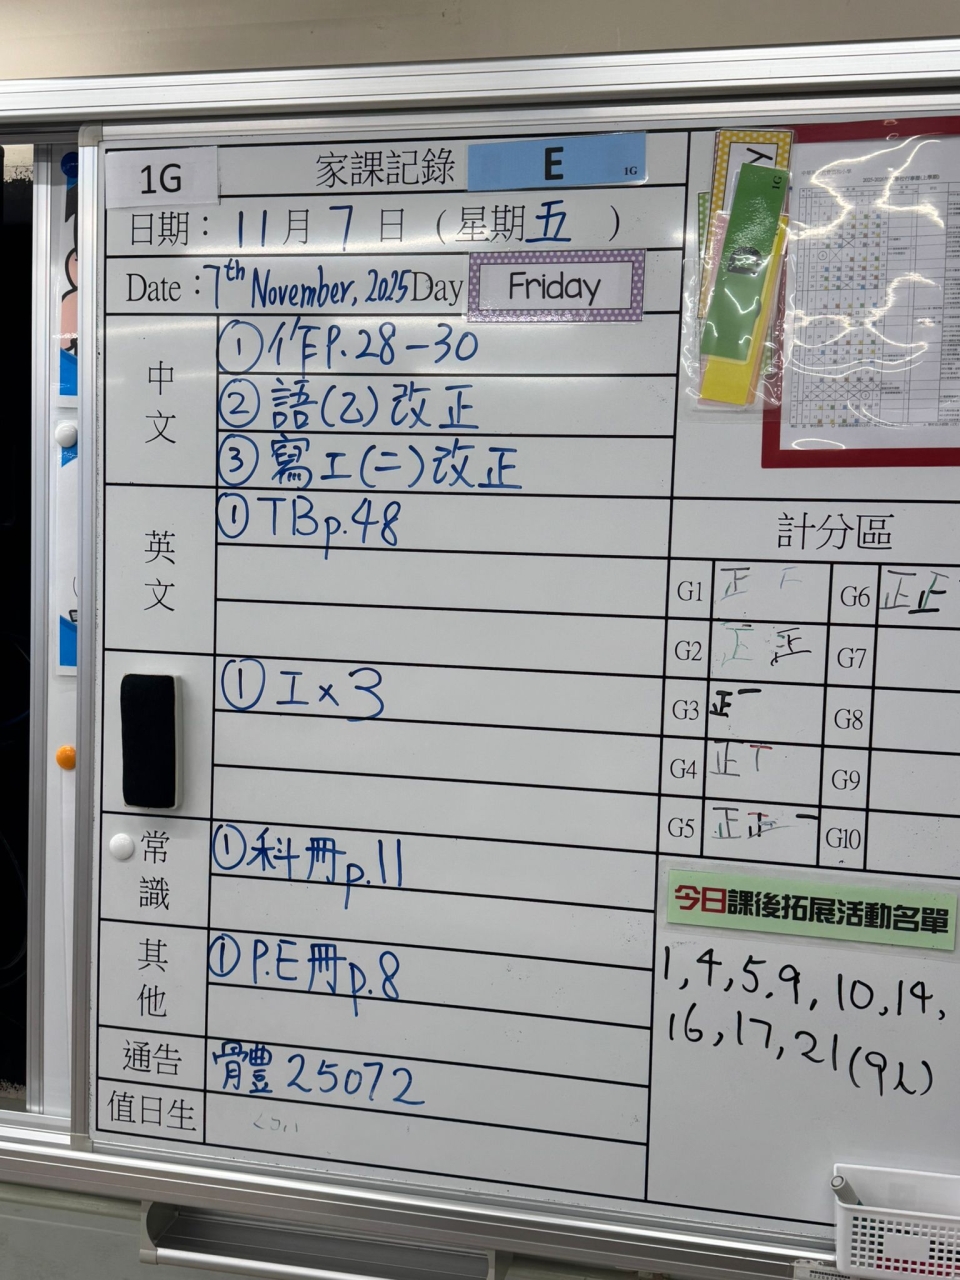 1G
家課記錄 E 1G
日期：11月7日（星期五）
Date：7th November, 2025 Day Friday
中文
①作P.28-30
②語(乙)改正
③寫工(二)改正
英文
①TB p.48
①工×3
常識
①科冊p.11
其他
①P.E冊p.8
通告
體25072
值日生
D 1G
計分區
G1 正
G2 正 正
G3 正一
G4 正
G5 正 正 一
G6 正正
G7
G8
G9
G10
今日課後拓展活動名單
1,4,5,9,10,14,
16,17,21(9人)